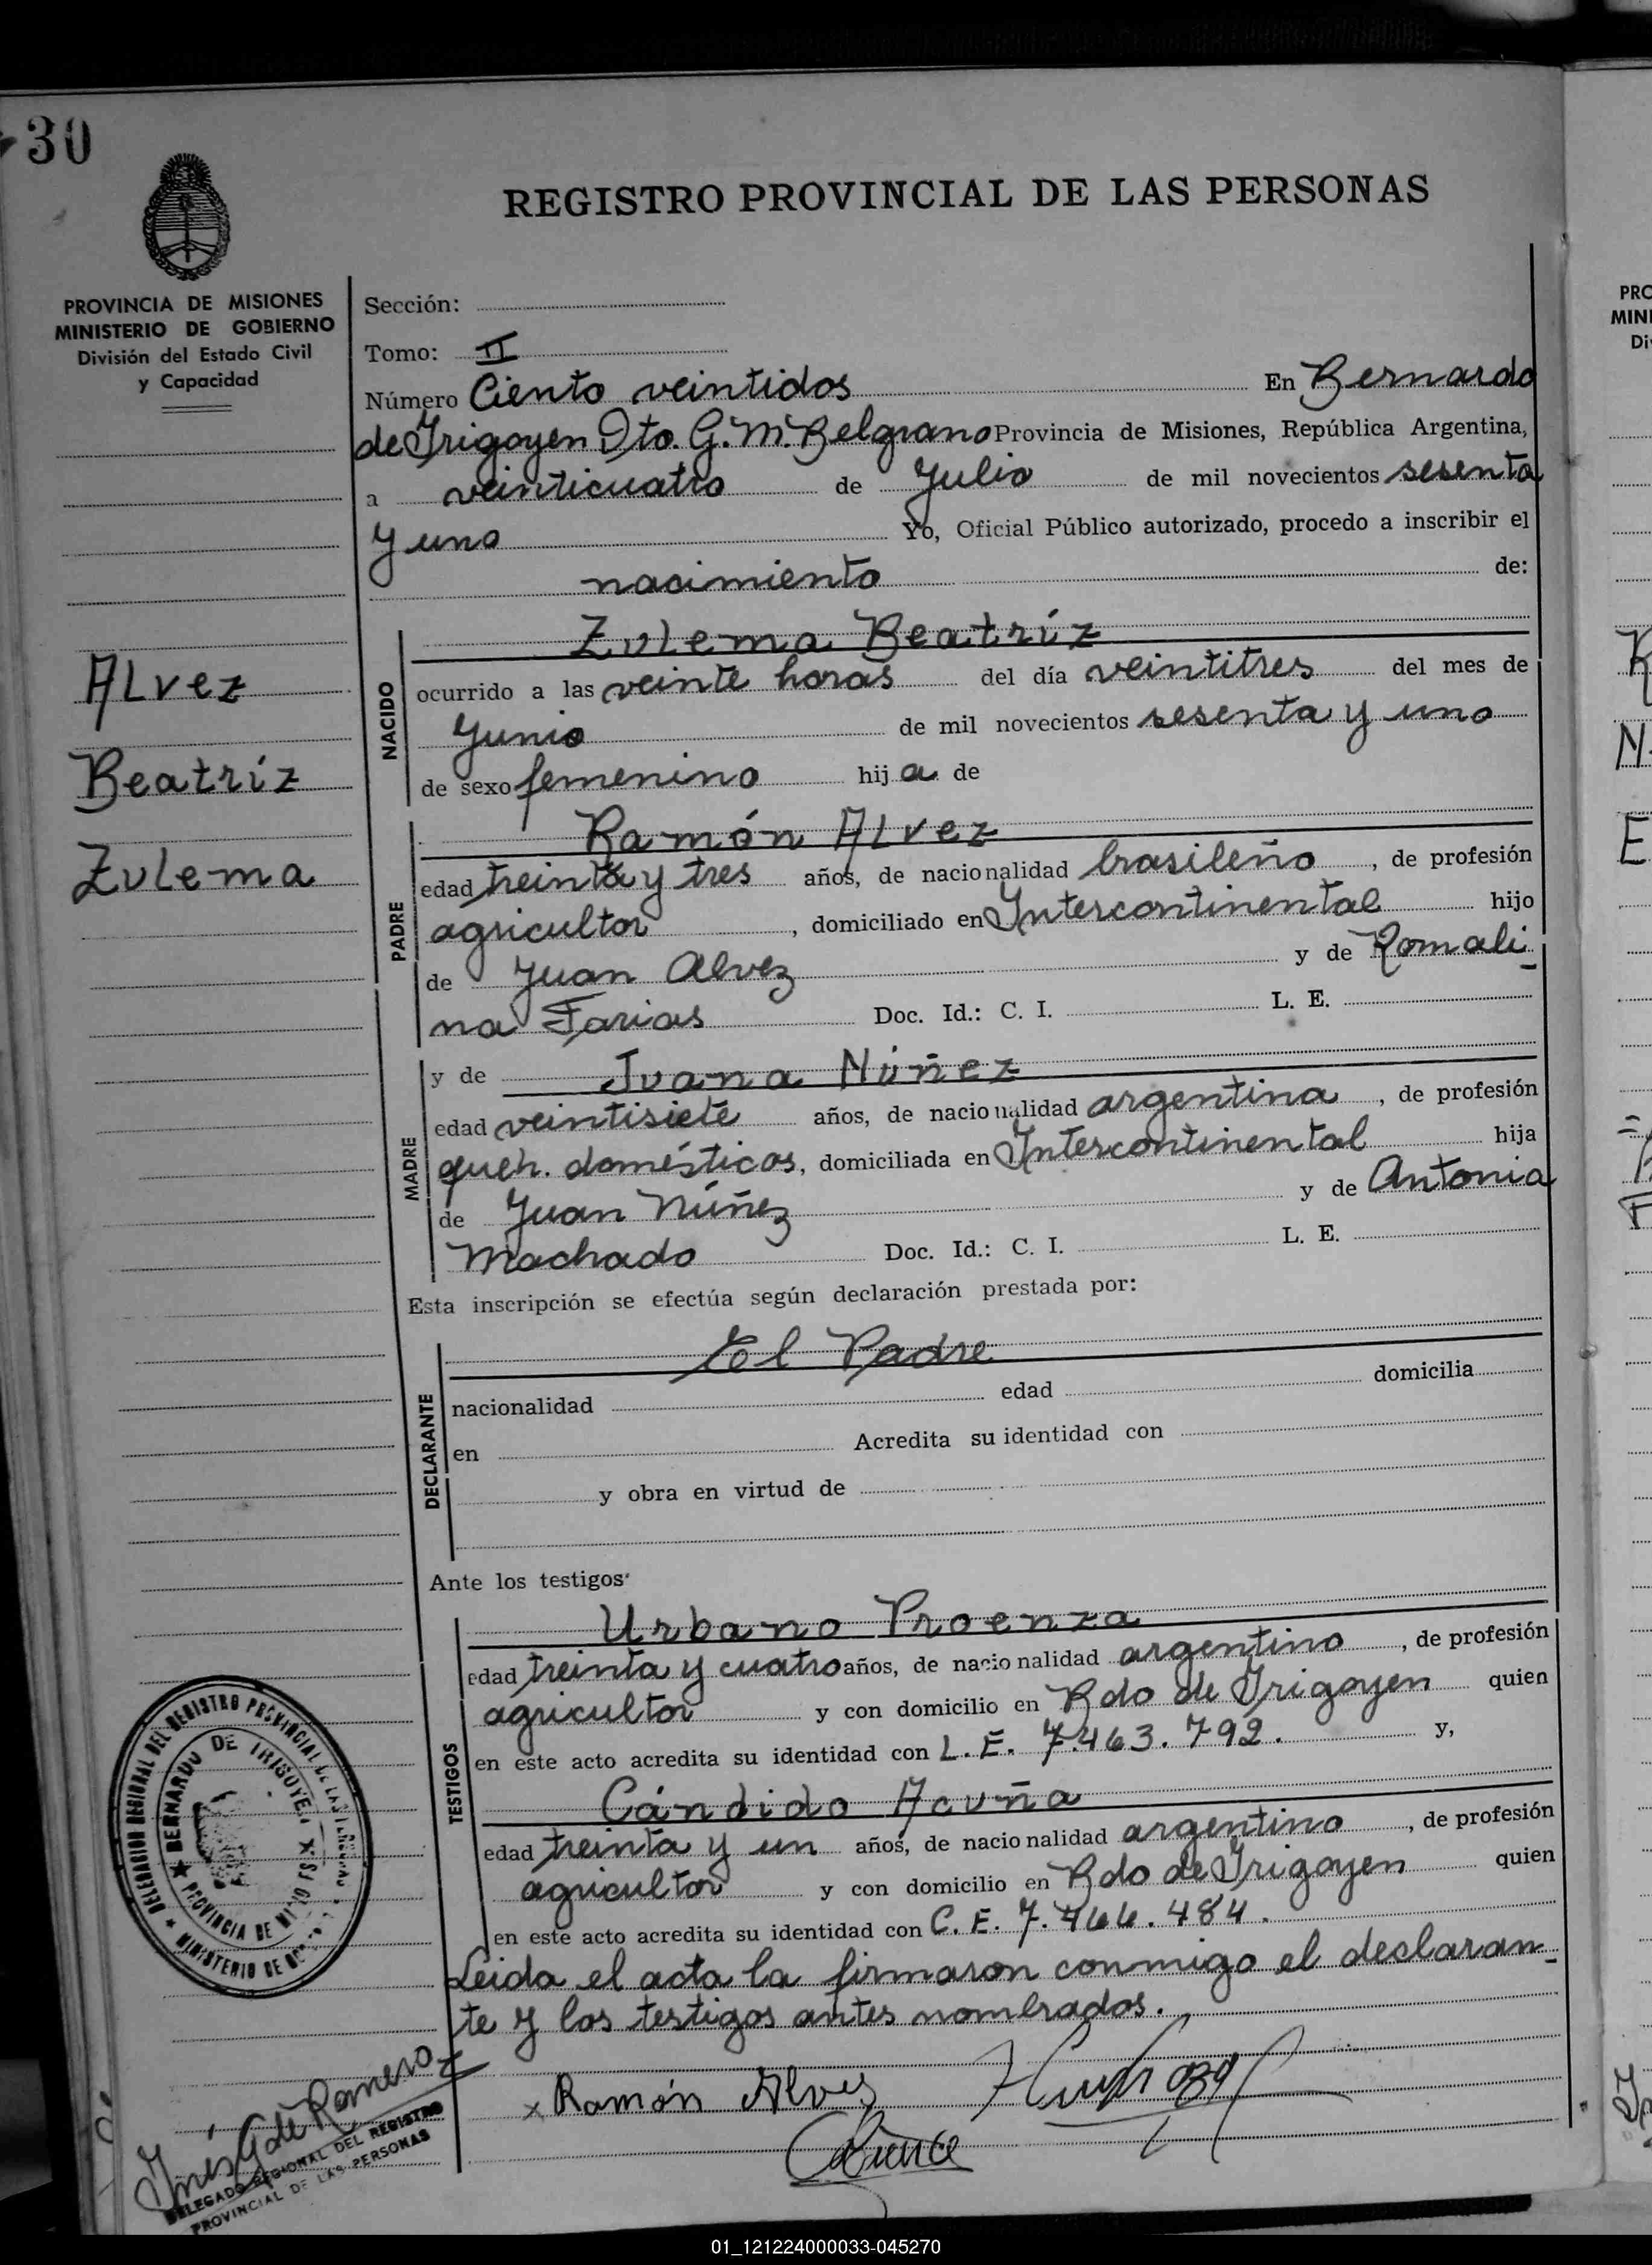 30
REGISTRO PROVINCIAL DE LAS PERSONAS
PROVINCIA DE MISIONES
MINISTERIO DE GOBIERNO
División del Estado Civil
y Capacidad
Sección:
Tomo: II
Número Ciento veintidos En Bernardo
de Irigoyen Dto. G. M. Belgrano Provincia de Misiones, República Argentina,
a veinticuatro de Julio de mil novecientos sesenta
y uno Yo, Oficial Público autorizado, procedo a inscribir el
nacimiento de:
Alvez
Beatríz
Zulema
NACIDO
Zulema Beatríz
ocurrido a las veinte horas del día veintitres del mes de
Junio de mil novecientos sesenta y uno
de sexo femenino hija de
PADRE
Ramón Alvez
edad treinta y tres años, de nacionalidad brasileño, de profesión
agricultor, domiciliado en Intercontinental hijo
de Juan Alvez y de Romali-
na Farias Doc. Id.: C. I. L. E.
MADRE
y de Juana Núñez
edad veintisiete años, de nacionalidad argentina, de profesión
queh. domésticos, domiciliada en Intercontinental hija
de Juan Núñez y de Antonia
Machado Doc. Id.: C. I. L. E.
Esta inscripción se efectúa según declaración prestada por:
DECLARANTE
El Padre
nacionalidad edad domicilia
en Acredita su identidad con
y obra en virtud de
Ante los testigos
TESTIGOS
Urbano Proenza
edad treinta y cuatro años, de nacionalidad argentino, de profesión
agricultor y con domicilio en Bdo de Irigoyen quien
en este acto acredita su identidad con L. E. 7.463.792. y,
Cándido Acuña
edad treinta y un años, de nacionalidad argentino, de profesión
agricultor y con domicilio en Bdo de Irigoyen quien
en este acto acredita su identidad con C. E. 7.466.484.
Leida el acta la firmaron conmigo el declaran-
te y los testigos antes nombrados.
x Ramón Alves
DELEGACION REGIONAL DEL REGISTRO PROVINCIAL DE LAS
BERNARDO DE IRIGOYEN
PROVINCIA DE MISIONES
MINISTERIO DE
Inés G de Romero
DELEGADO REGIONAL DEL REGISTRO
PROVINCIAL DE LAS PERSONAS
PRO
MINI
Di
01_121224000033-045270